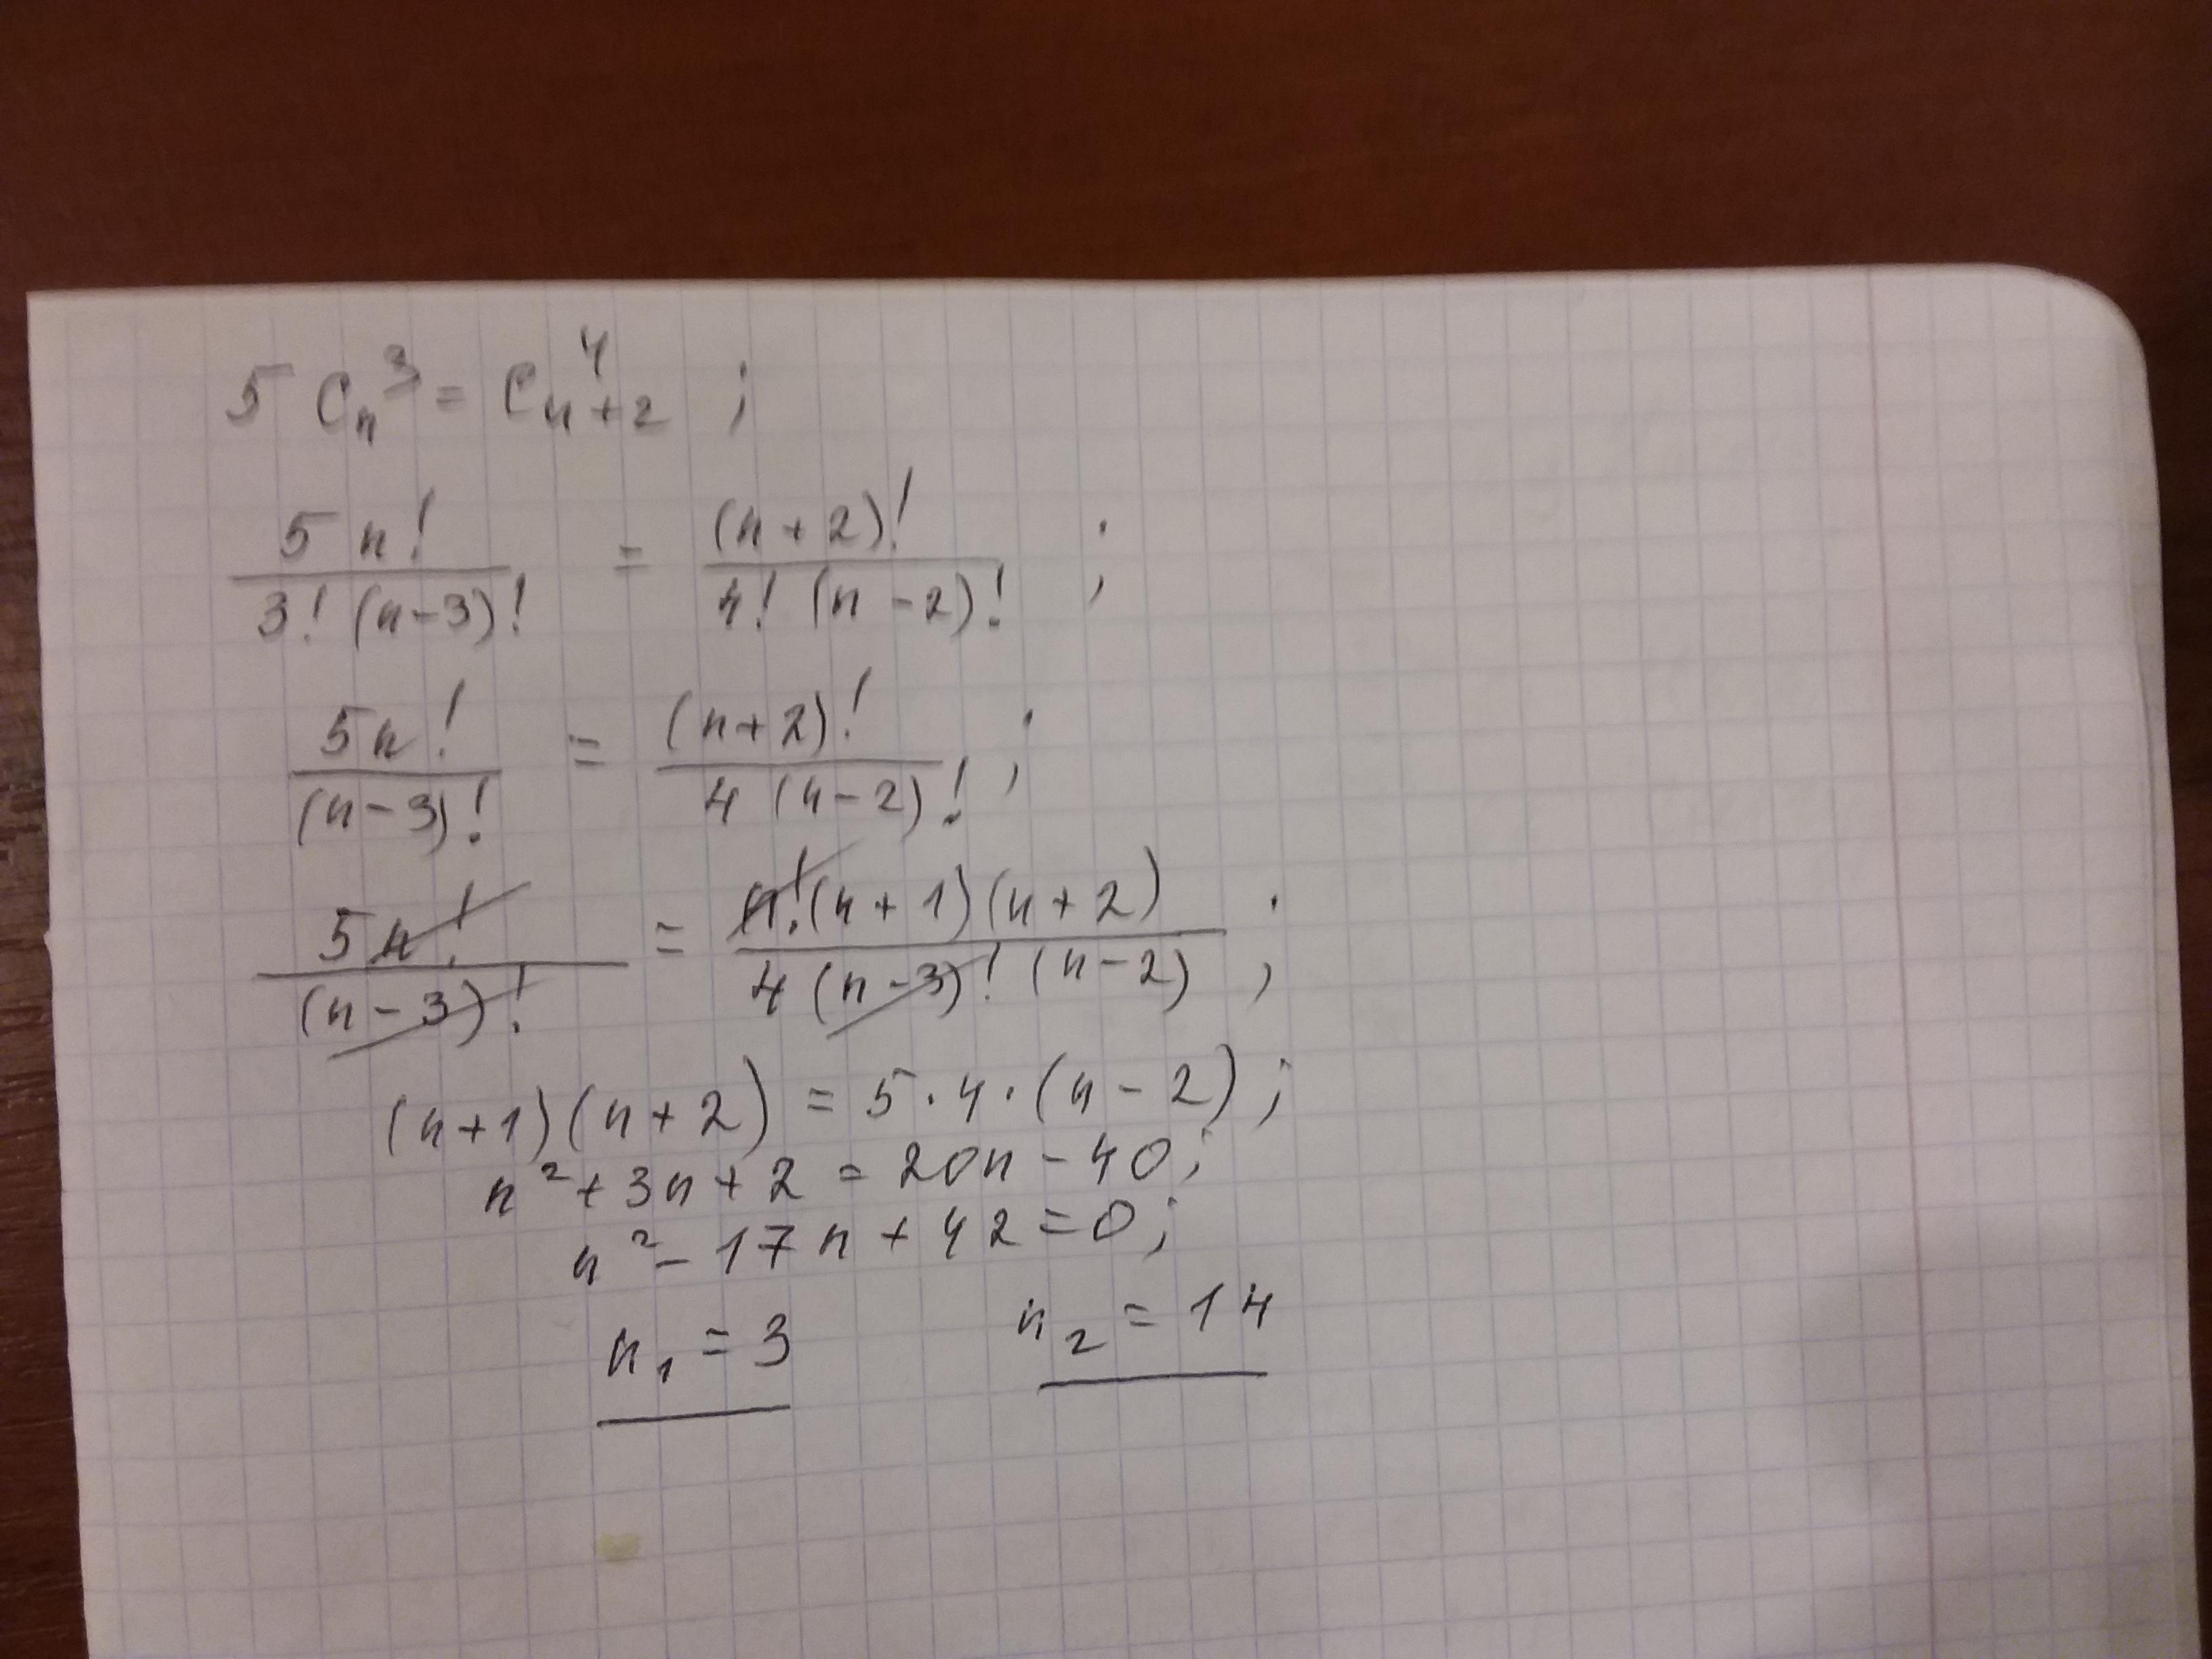 5 C_n^3 = C_{n+2}^4 ;
\frac{5 n!}{3! (n-3)!} = \frac{(n+2)!}{4! (n-2)!} ;
\frac{5n!}{(n-3)!} = \frac{(n+2)!}{4 (n-2)!} ;
\frac{5n!}{(n-3)!} = \frac{n!(n+1)(n+2)}{4 (n-3)! (n-2)} ;
(n+1)(n+2) = 5·4·(n-2);
n²+3n+2 = 20n-40;
n²-17n+42=0;
n₁ = 3 n₂ = 14